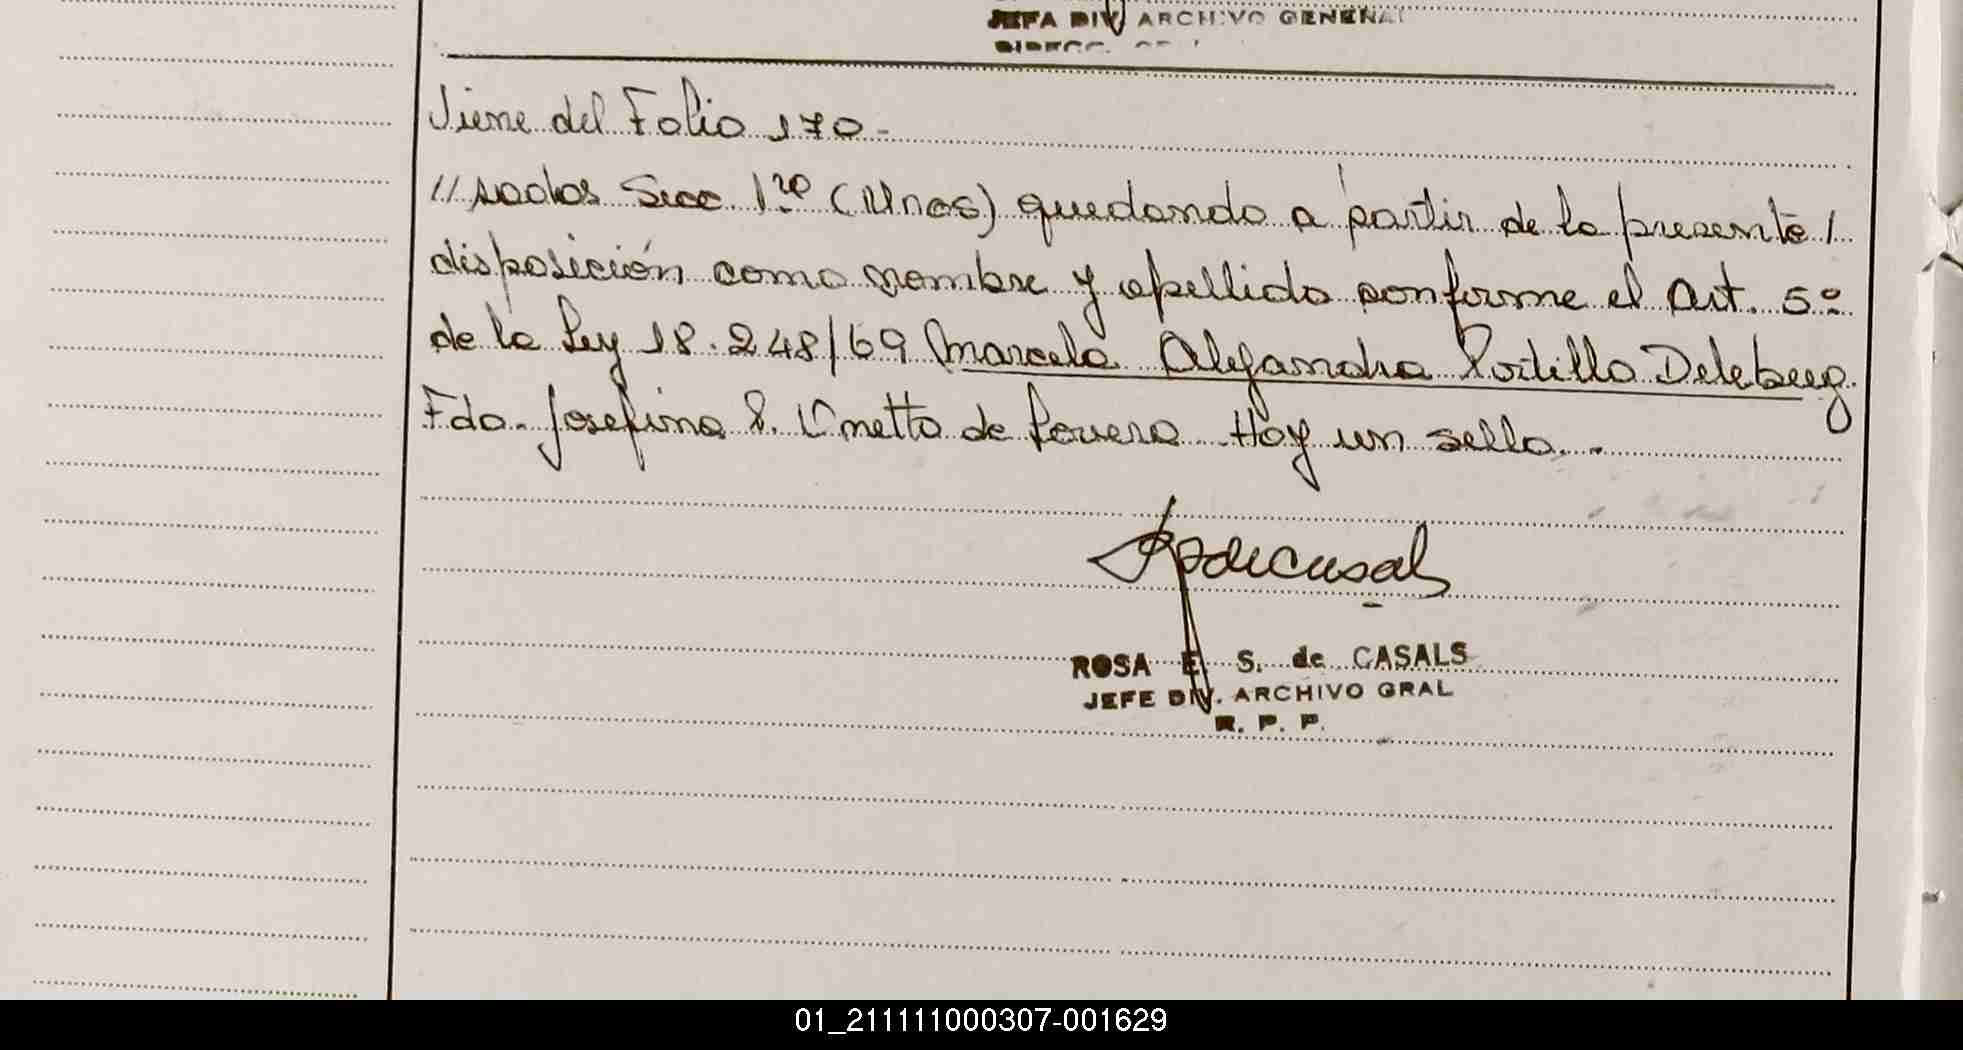 JEFA DIV ARCHIVO GENERAL
Viene del Folio 170-
// sados Secc. 1ra (Unos) quedando a partir de la presente /
disposición como nombre y apellido conforme el Art. 5º
de la Ley 18.248/69 Marcela Alejandra Portillo Deleberg.
Fdo. Josefina S. de Hay un sello..
ROSA E. S. de CASALS
JEFE DIV. ARCHIVO GRAL
R. P. P.
01_211111000307-001629